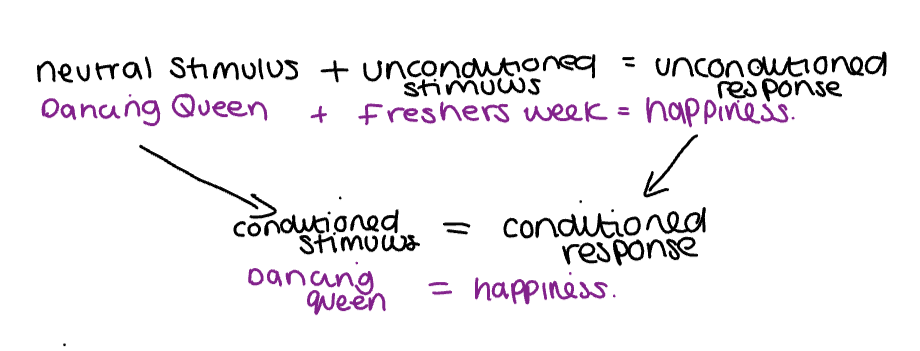 neutral stimulus + unconditioned stimulus = unconditioned response
Dancing Queen + freshers week = happiness.
conditioned stimulus = conditioned response
Dancing queen = happiness.